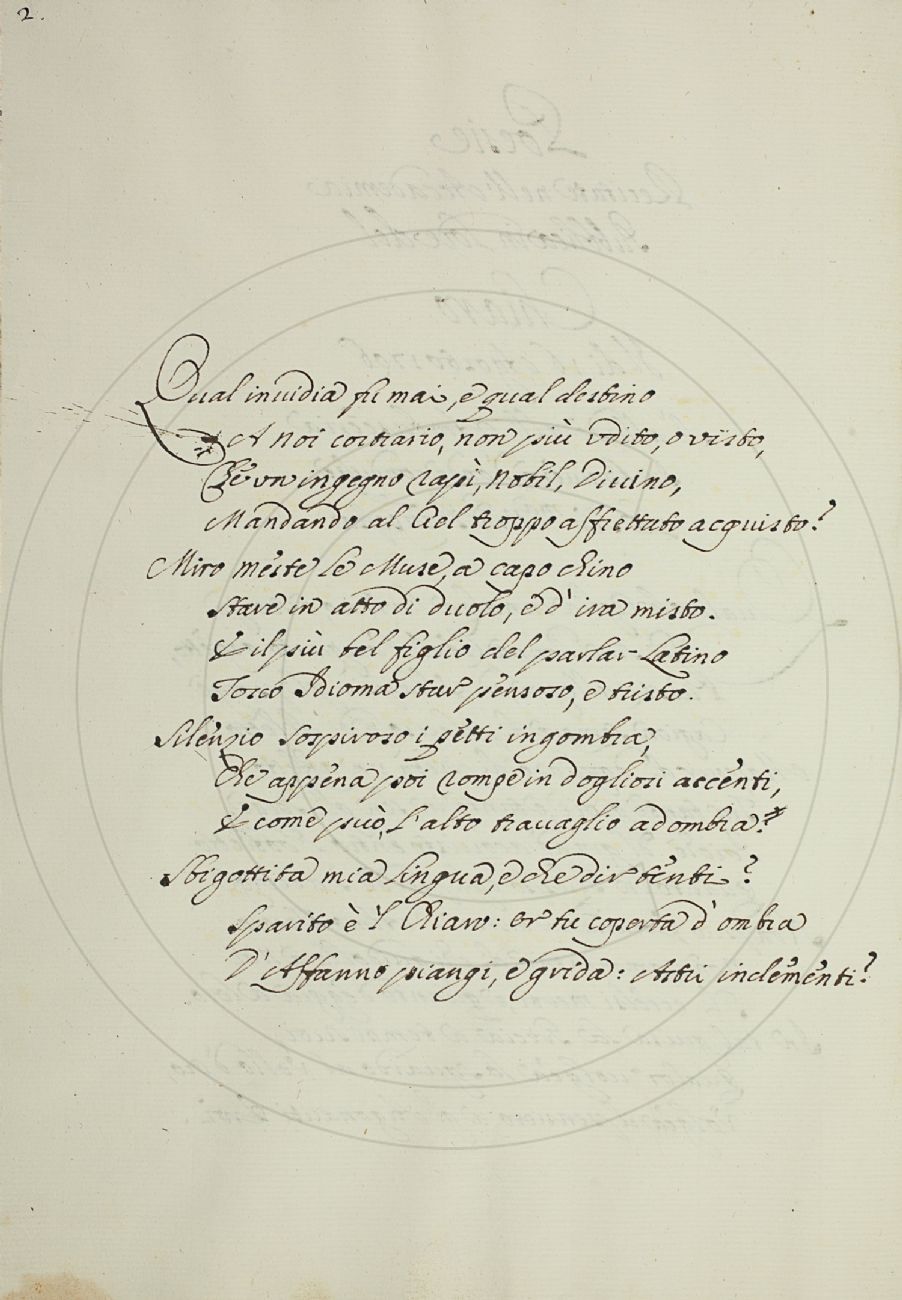 2.
Qual inuidia fù mai, e qual destino
A noi contrario, non più vdito, o visto,
Che vn ingegno rapì, Nobil, Diuino,
Mandando al Ciel troppo affrettato acquisto?
Miro meste le Muse, a capo chino
Stare in atto di duolo, e d' ira misto.
E il più bel figlio del parlar Latino
Tosco Idioma star pensoso, e tristo.
Silenzio sospiroso i petti ingombra,
Che appena poi rompe in dogliosi accenti,
E come può, l'alto trauaglio adombra.
Sbigottita mia Lingua, e che dir tenti?
Sparito è 'l Chiaro: or tu coperta d' ombra
D' Affanno piangi, e grida: Astri inclementi?